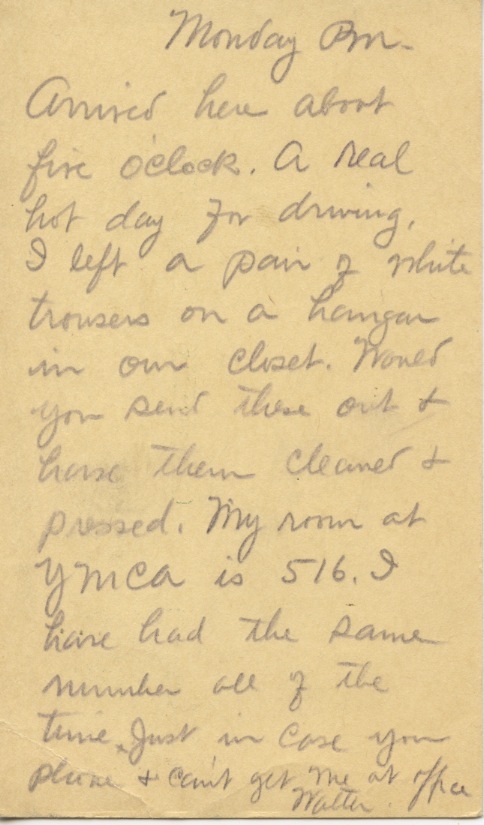 Monday Pm.
Arrived here about
five o'clock. A real
hot day for driving.
I left a pair of white
trousers on a hangar
in our closet. Would
you send these out &
have them cleaned &
pressed. My room at
YMCA is 516. I
have had the same
number all of the
time. Just in case you
phone & can't get me at office
Walter.